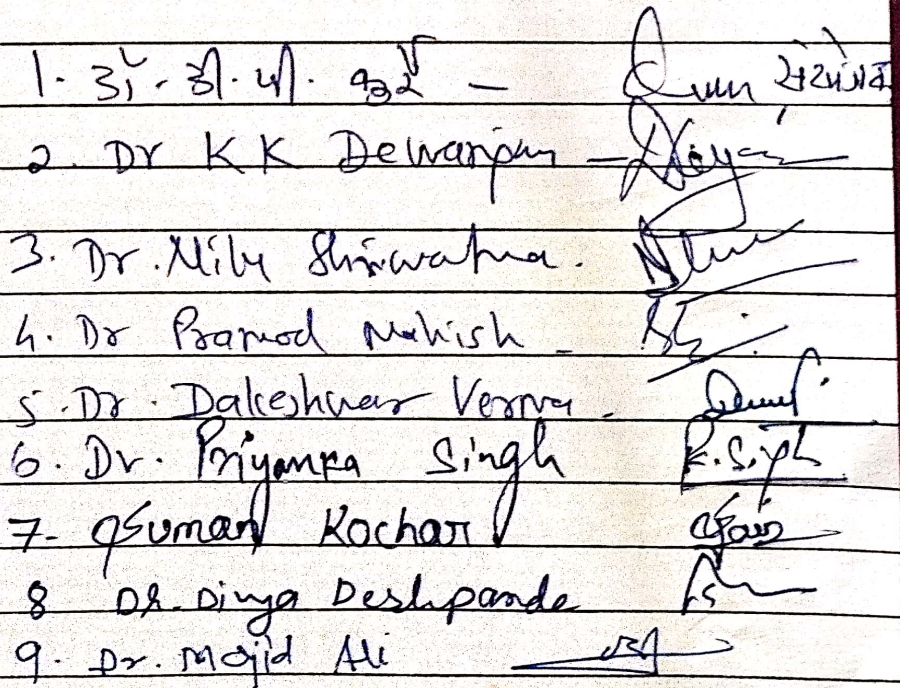 1. डॉ. डी. पी. कुर्रे - संयोजक
2. Dr K K Dewangan -
3. Dr. Nilu Shriwastva.
4. Dr Pramod Mahish -
5. Dr. Dakeshwar Verma -
6. Dr. Priyanka Singh P. Singh
7. Suman Kochar
8 Dr. Divya Deshpande
9. Dr. Majid Ali